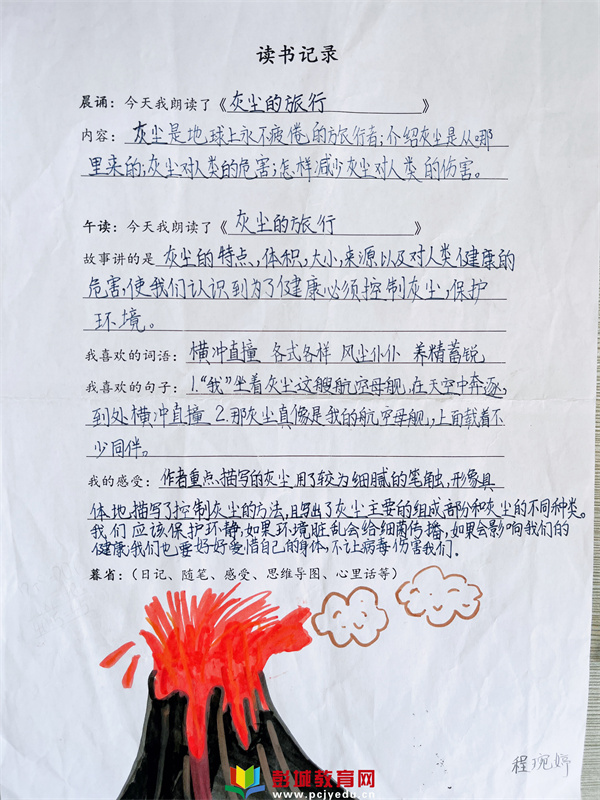 读书记录
晨诵：今天我朗读了《灰尘的旅行》
内容：灰尘是地球上永不疲倦的旅行者；介绍灰尘是从哪
里来的；灰尘对人类的危害；怎样减少灰尘对人类的伤害。
午读：今天我朗读了《灰尘的旅行》
故事讲的是 灰尘的特点，体积，大小，来源以及对人类健康的
危害，使我们认识到为了健康必须控制灰尘，保护
环境。
我喜欢的词语：横冲直撞 各式各样 风尘仆仆 养精蓄锐
我喜欢的句子：1.“我”坐着灰尘这艘航空母舰，在天空中奔逐，
到处横冲直撞 2.那灰尘真像是我的航空母舰，上面载着不
少同伴。
我的感受：作者重点描写的灰尘，用了较为细腻的笔触，形象具
体地描写了控制灰尘的方法，且写出了灰尘主要的组成部份和灰尘的不同种类。
我们应该保护环静，如果环境脏乱会给细菌传播，如果会影响我们的
健康，我们也要好好爱惜自己的身体，不让病毒伤害我们。
暮省：（日记、随笔、感受、思维导图、心里话等）
程琬婷
彭城教育网
www.pcjyedu.cn